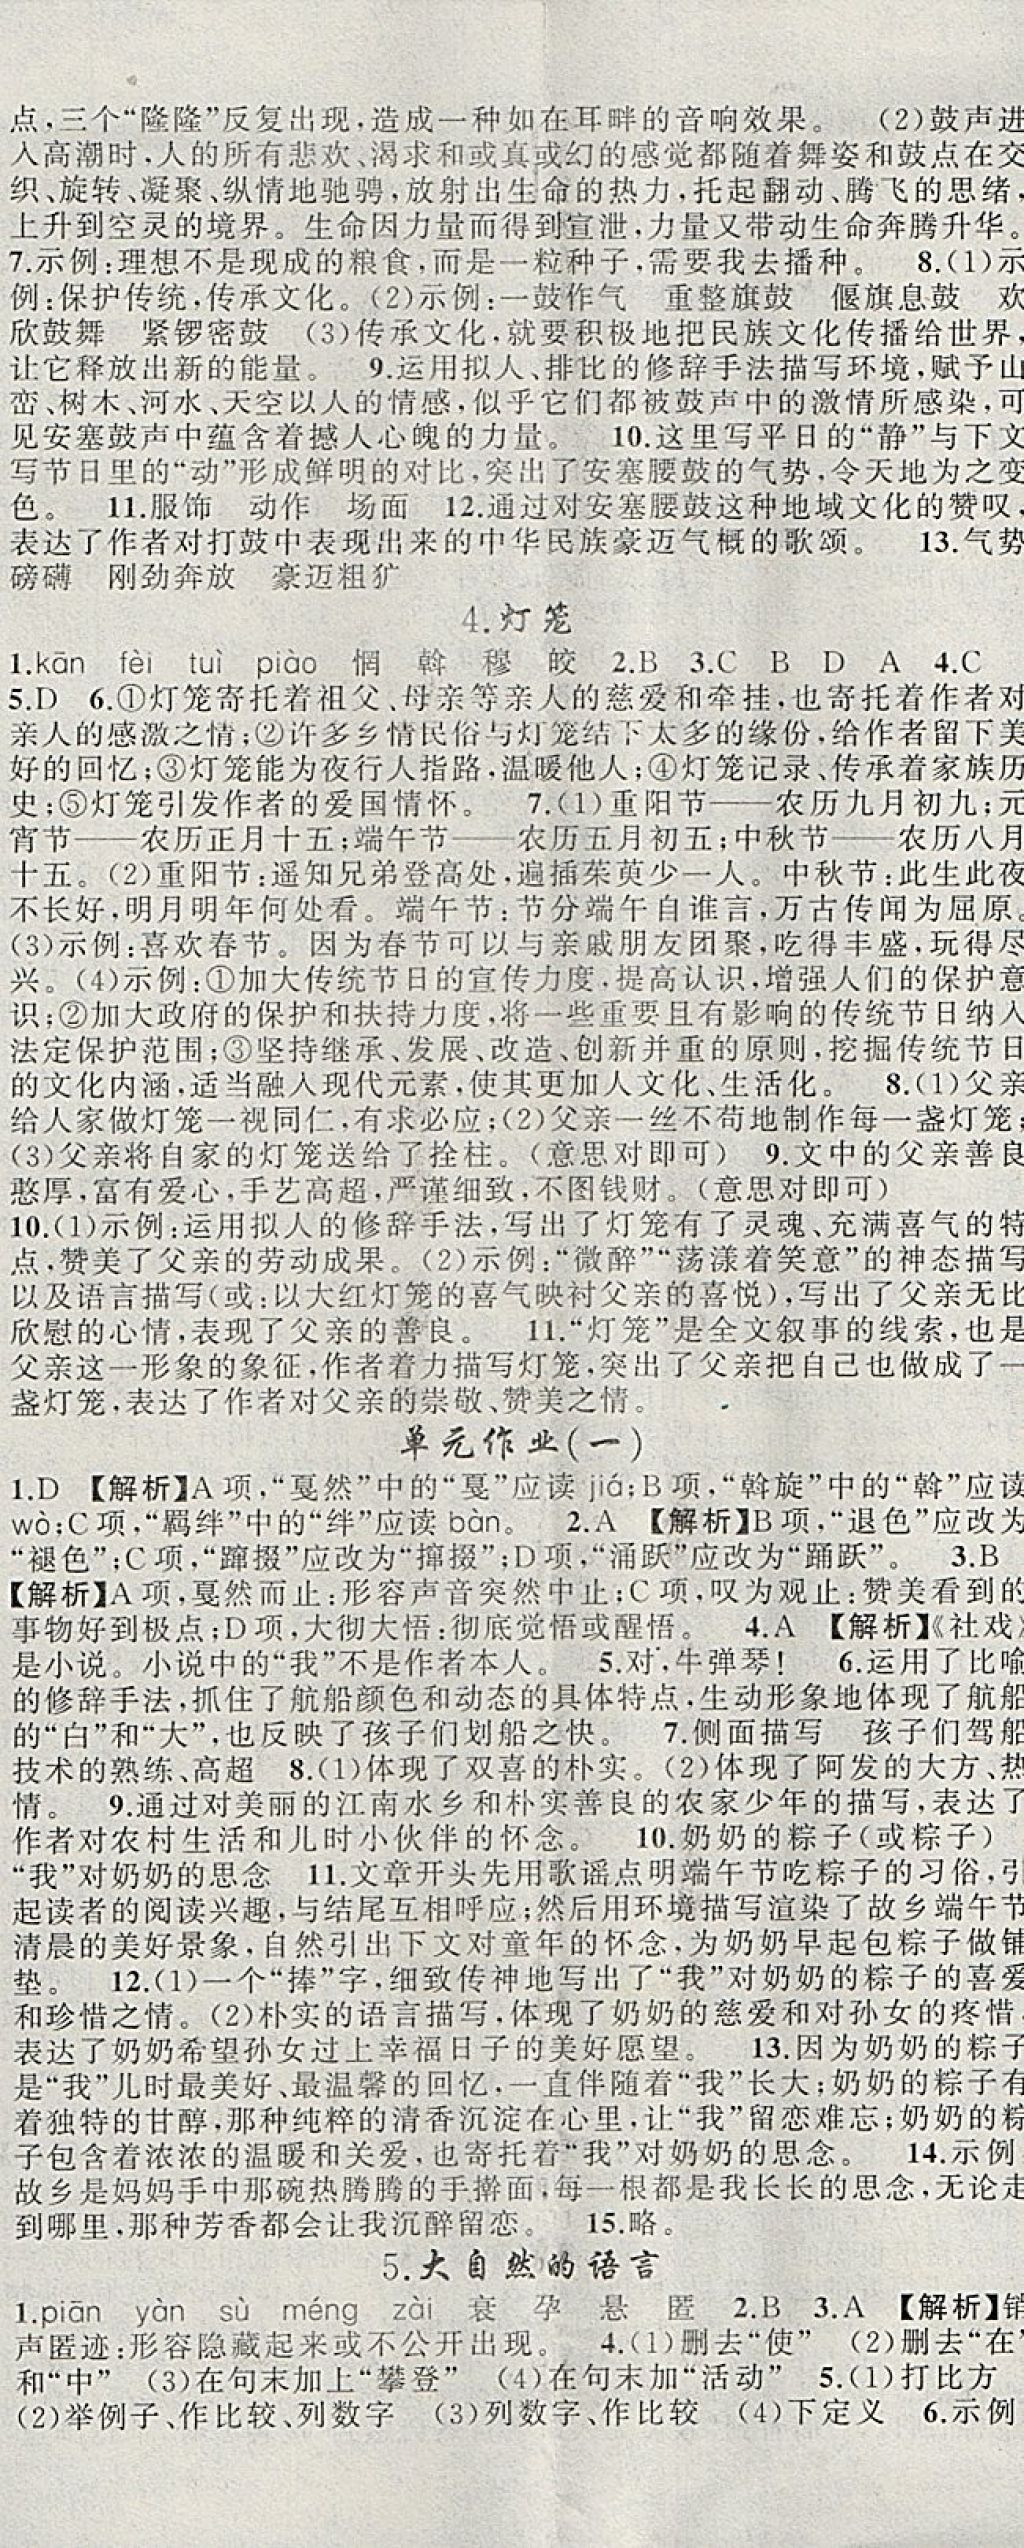 点,三个“隆隆”反复出现,造成一种如在耳畔的音响效果。 (2)鼓声进
入高潮时,人的所有悲欢、渴求和或真或幻的感觉都随着舞姿和鼓点在交
织、旋转、凝聚、纵情地驰骋,放射出生命的热力,托起翻动、腾飞的思绪,
上升到空灵的境界。生命因力量而得到宣泄,力量又带动生命奔腾升华。
7.示例:理想不是现成的粮食,而是一粒种子,需要我去播种。 8.(1)示
例:保护传统,传承文化。(2)示例:一鼓作气 重整旗鼓 偃旗息鼓 欢
欣鼓舞 紧锣密鼓 (3)传承文化,就要积极地把民族文化传播给世界,
让它释放出新的能量。 9.运用拟人、排比的修辞手法描写环境,赋予山
峦、树木、河水、天空以人的情感,似乎它们都被鼓声中的激情所感染,可
见安塞鼓声中蕴含着撼人心魄的力量。 10.这里写平日的“静”与下文
写节日里的“动”形成鲜明的对比,突出了安塞腰鼓的气势,令天地为之变
色。 11.服饰 动作 场面 12.通过对安塞腰鼓这种地域文化的赞叹,
表达了作者对打鼓中表现出来的中华民族豪迈气概的歌颂。 13.气势
磅礴 刚劲奔放 豪迈粗犷
4.灯笼
1.kān fèi tuì piào 惘 斡 穆 皎 2.B 3.C B D A 4.C
5.D 6.①灯笼寄托着祖父、母亲等亲人的慈爱和牵挂,也寄托着作者对
亲人的感激之情;②许多乡情民俗与灯笼结下太多的缘份,给作者留下美
好的回忆;③灯笼能为夜行人指路,温暖他人;④灯笼记录、传承着家族历
史;⑤灯笼引发作者的爱国情怀。 7.(1)重阳节——农历九月初九;元
宵节——农历正月十五;端午节——农历五月初五;中秋节——农历八月
十五。(2)重阳节:遥知兄弟登高处,遍插茱萸少一人。中秋节:此生此夜
不长好,明月明年何处看。端午节:节分端午自谁言,万古传闻为屈原。
(3)示例:喜欢春节。因为春节可以与亲戚朋友团聚,吃得丰盛,玩得尽
兴。(4)示例:①加大传统节日的宣传力度,提高认识,增强人们的保护意
识;②加大政府的保护和扶持力度,将一些重要且有影响的传统节日纳入
法定保护范围;③坚持继承、发展、改造、创新并重的原则,挖掘传统节日
的文化内涵,适当融入现代元素,使其更加人文化、生活化。 8.(1)父亲
给人家做灯笼一视同仁,有求必应;(2)父亲一丝不苟地制作每一盏灯笼;
(3)父亲将自家的灯笼送给了拴柱。(意思对即可) 9.文中的父亲善良
憨厚,富有爱心,手艺高超,严谨细致,不图钱财。(意思对即可)
10.(1)示例:运用拟人的修辞手法,写出了灯笼有了灵魂、充满喜气的特
点,赞美了父亲的劳动成果。(2)示例:“微醉”“荡漾着笑意”的神态描写
以及语言描写(或:以大红灯笼的喜气映衬父亲的喜悦),写出了父亲无比
欣慰的心情,表现了父亲的善良。 11.“灯笼”是全文叙事的线索,也是
父亲这一形象的象征,作者着力描写灯笼,突出了父亲把自己也做成了一
盏灯笼,表达了作者对父亲的崇敬、赞美之情。
单元作业(一)
1.D 【解析】A项,“戛然”中的“戛”应读jiá;B项,“斡旋”中的“斡”应读
wò;C项,“羁绊”中的“绊”应读bàn。 2.A 【解析】B项,“退色”应改为
“褪色”;C项,“蹿掇”应改为“撺掇”;D项,“涌跃”应改为“踊跃”。 3.B
【解析】A项,戛然而止:形容声音突然中止;C项,叹为观止:赞美看到的
事物好到极点;D项,大彻大悟:彻底觉悟或醒悟。 4.A 【解析】《社戏》
是小说。小说中的“我”不是作者本人。 5.对,牛弹琴! 6.运用了比喻
的修辞手法,抓住了航船颜色和动态的具体特点,生动形象地体现了航船
的“白”和“大”,也反映了孩子们划船之快。 7.侧面描写 孩子们驾船
技术的熟练、高超 8.(1)体现了双喜的朴实。(2)体现了阿发的大方、热
情。 9.通过对美丽的江南水乡和朴实善良的农家少年的描写,表达了
作者对农村生活和儿时小伙伴的怀念。 10.奶奶的粽子(或粽子)
“我”对奶奶的思念 11.文章开头先用歌谣点明端午节吃粽子的习俗,引
起读者的阅读兴趣,与结尾互相呼应;然后用环境描写渲染了故乡端午节
清晨的美好景象,自然引出下文对童年的怀念,为奶奶早起包粽子做铺
垫。 12.(1)一个“捧”字,细致传神地写出了“我”对奶奶的粽子的喜爱
和珍惜之情。(2)朴实的语言描写,体现了奶奶的慈爱和对孙女的疼惜,
表达了奶奶希望孙女过上幸福日子的美好愿望。 13.因为奶奶的粽子
是“我”儿时最美好、最温馨的回忆,一直伴随着“我”长大;奶奶的粽子有
着独特的甘醇,那种纯粹的清香沉淀在心里,让“我”留恋难忘;奶奶的粽
子包含着浓浓的温暖和关爱,也寄托着“我”对奶奶的思念。 14.示例
故乡是妈妈手中那碗热腾腾的手擀面,每一根都是我长长的思念,无论走
到哪里,那种芳香都会让我沉醉留恋。 15.略。
5.大自然的语言
1.piān yàn sù méng zài 衰 孕 悬 匿 2.B 3.A 【解析】销
声匿迹:形容隐藏起来或不公开出现。 4.(1)删去“使” (2)删去“在”
和“中” (3)在句末加上“攀登” (4)在句末加“活动” 5.(1)打比方
(2)举例子、作比较、列数字 (3)列数字、作比较 (4)下定义 6.示例